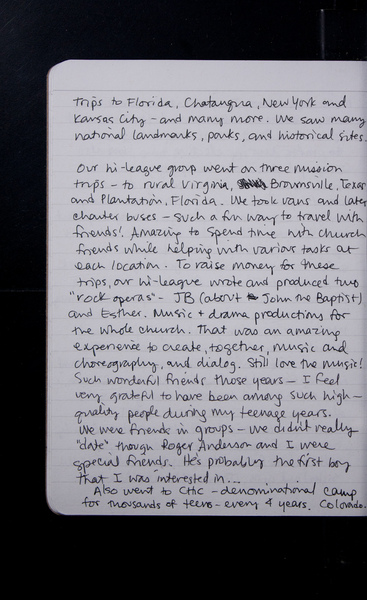 trips to Florida, Chatauqua, New York and
Kansas City - and many more. We saw many
national landmarks, parks, and historical sites.
Our hi-league group went on three mission
trips - to rural Virginia, Brownsville, Texas
and Plantation, Florida. We took vans and later
charter buses - such a fun way to travel with
friends! Amazing to spend time with church
friends while helping with various tasks at
each location. To raise money for these
trips, our hi-league wrote and produced two
"rock operas" - JB (about John the Baptist)
and Esther. Music + drama productions for
the whole church. That was an amazing
experience to create, together, music and
choreography, and dialog. Still love the music!
Such wonderful friends those years - I feel
very grateful to have been among such high-
quality people during my teenage years.
We were friends in groups - we didn't really
"date" though Roger Anderson and I were
special friends. He's probably the first boy
that I was interested in...
Also went to CHIC - denominational camp
for thousands of teens - every 4 years. Colorado.